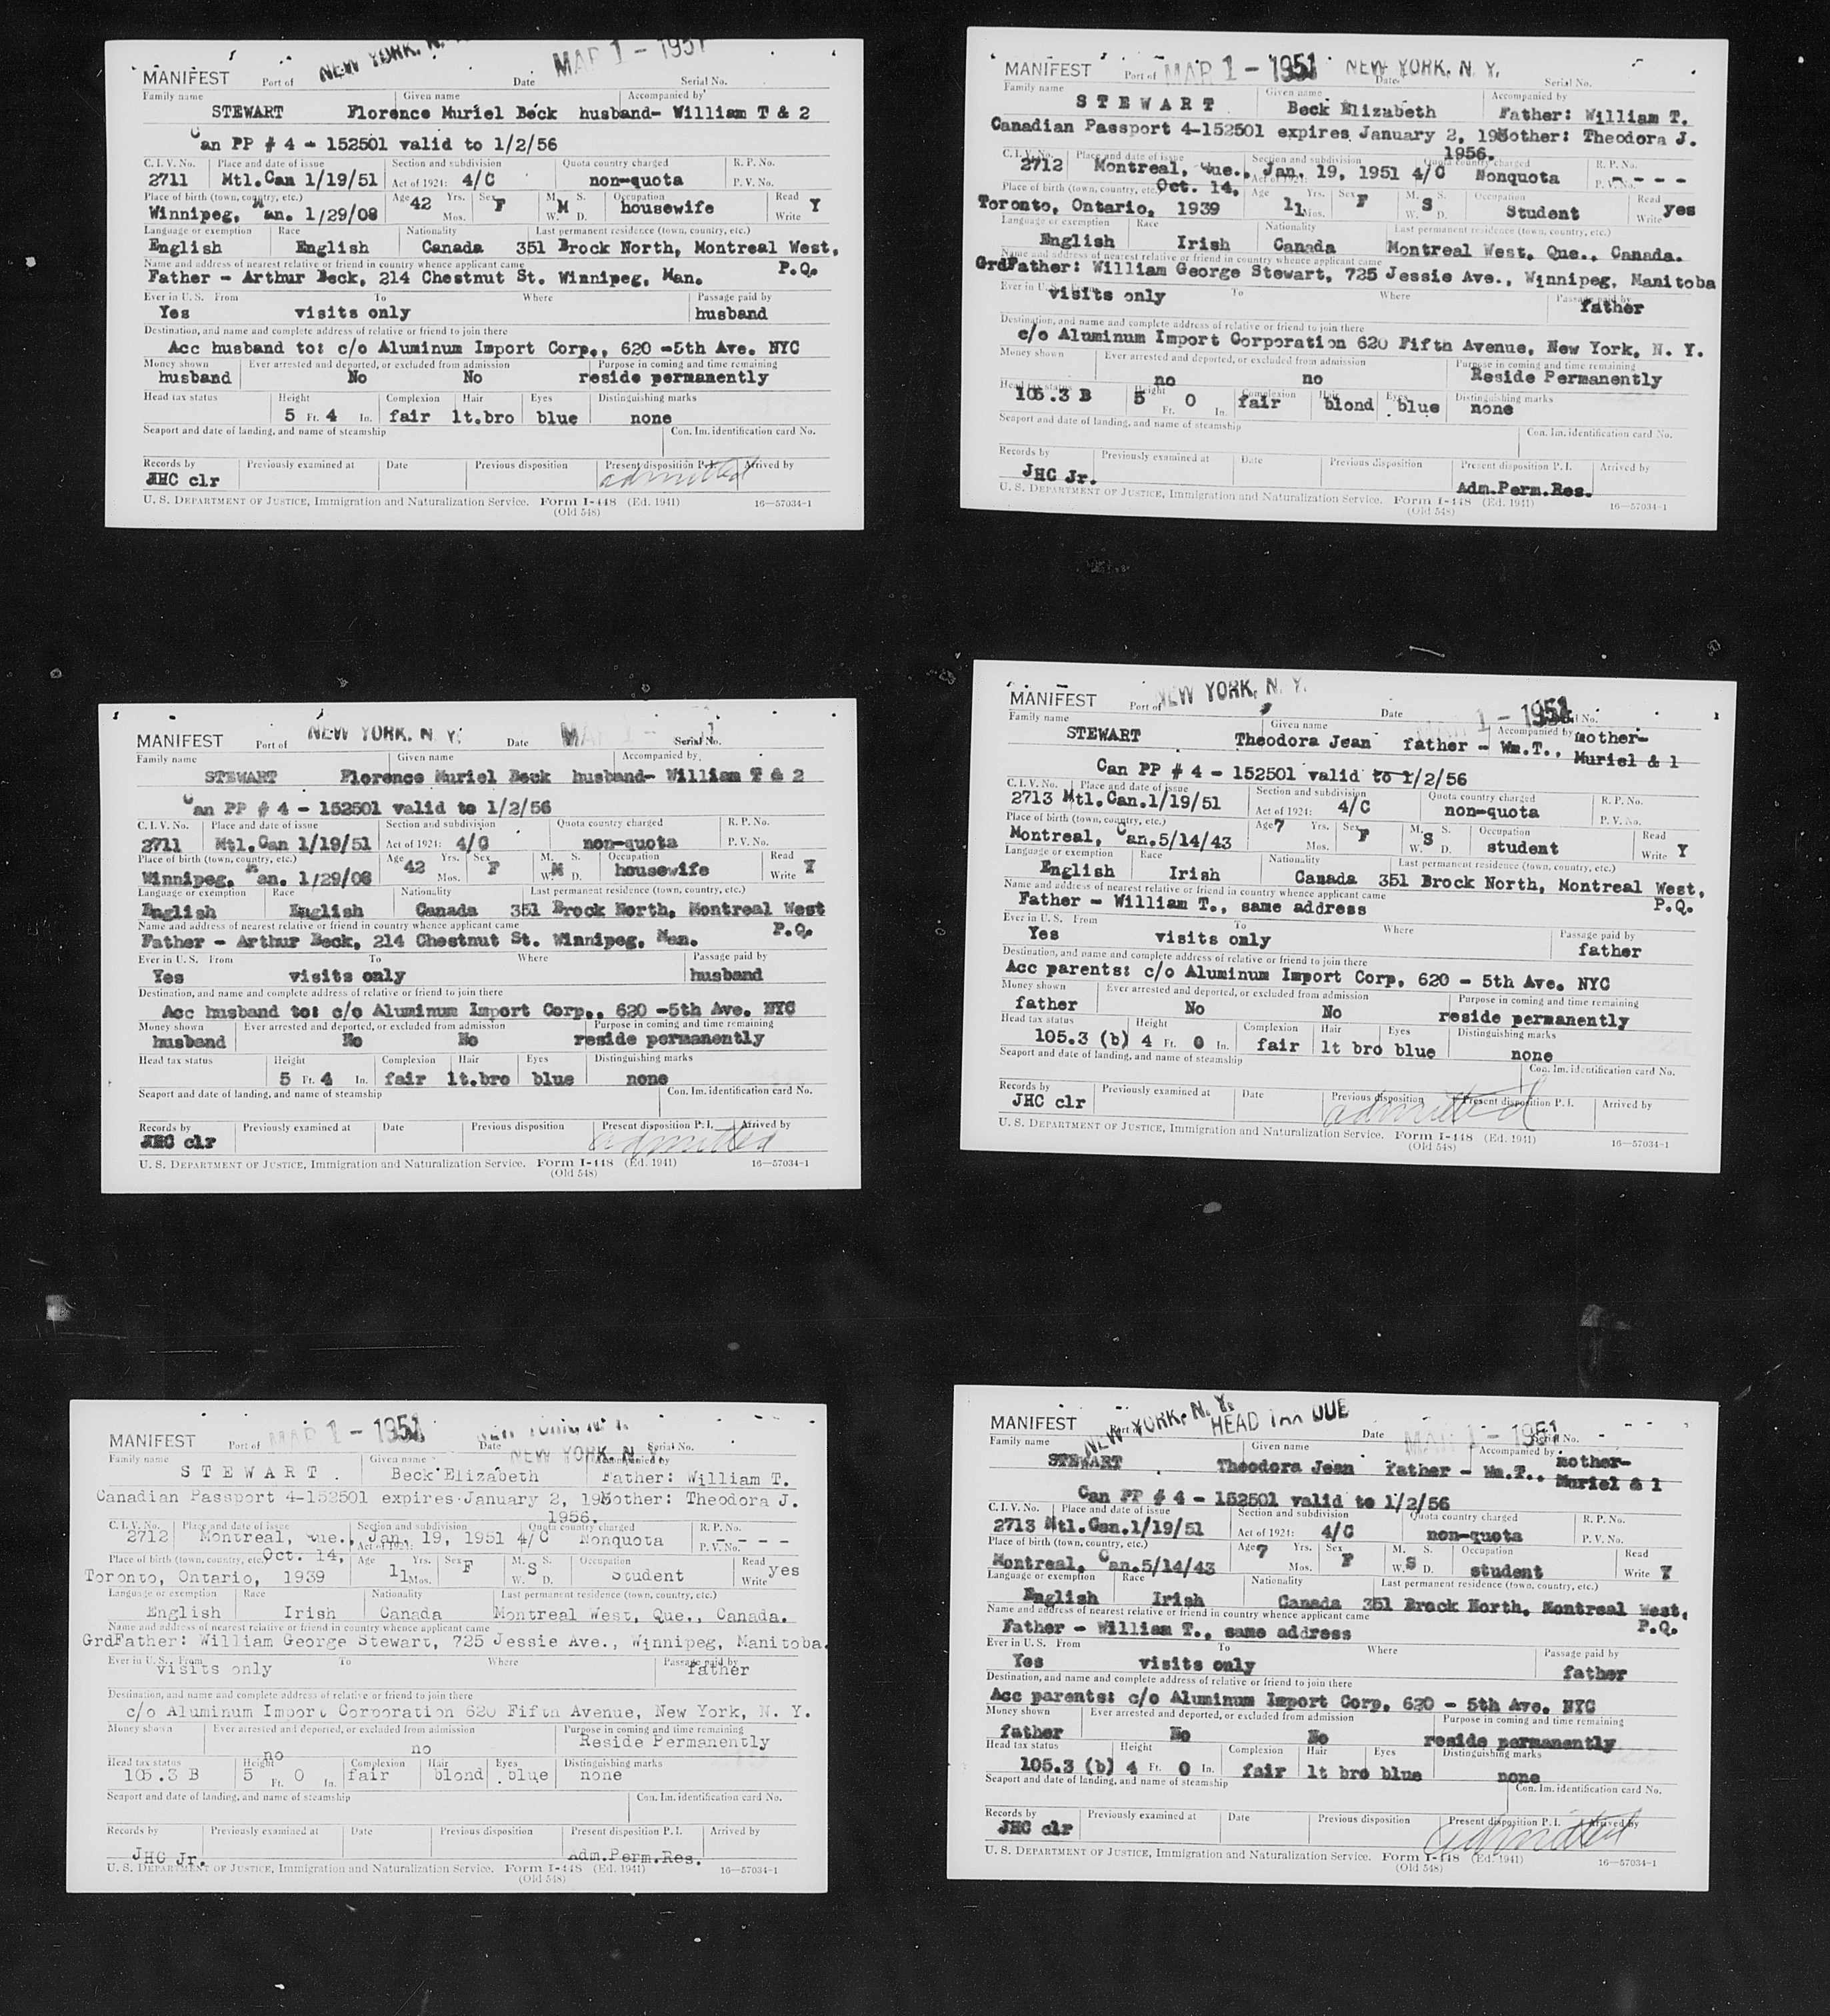 NEW YORK, N.
MAR 1 - 1951
MANIFEST Port of Date Serial No.
Family name Given name Accompanied by
STEWART Florence Muriel Beck husband- William T & 2
Can PP # 4 - 152501 valid to 1/2/56
C. I. V. No. Place and date of issue Section and subdivision Quota country charged R. P. No.
2711 Mtl.Can 1/19/51 Act of 1921: 4/C non-quota P. V. No.
Place of birth (town, country, etc.) Age 42 Yrs. Sex F M. S. Occupation Read
Winnipeg, Man. 1/29/08 Mos. W. M D. housewife Write Y
Language or exemption Race Nationality Last permanent residence (town, country, etc.)
English English Canada 351 Brock North, Montreal West,
Name and address of nearest relative or friend in country whence applicant came P.Q.
Father - Arthur Beck, 214 Chestnut St. Winnipeg, Man.
Ever in U. S. From To Where Passage paid by
Yes visits only husband
Destination, and name and complete address of relative or friend to join there
Acc husband to: c/o Aluminum Import Corp., 620 -5th Ave. NYC
Money shown Ever arrested and deported, or excluded from admission Purpose in coming and time remaining
husband No No reside permanently
Head tax status Height Complexion Hair Eyes Distinguishing marks
5 Ft. 4 In. fair lt.bro blue none
Seaport and date of landing, and name of steamship Con. Im. identification card No.
Records by Previously examined at Date Previous disposition Present disposition P. I. Arrived by
JHC clr admitted
U. S. DEPARTMENT OF JUSTICE, Immigration and Naturalization Service. Form I-448 (Ed. 1941) 16—57034-1
(Old 548)
MANIFEST Port of MAR 1 - 1951 NEW YORK, N. Y.
Date Serial No.
Family name Given name Accompanied by
S T E W A R T Beck Elizabeth Father: William T.
Canadian Passport 4-152501 expires January 2, 195 Mother: Theodora J.
1956.
C. I. V. No. Place and date of issue Section and subdivision Quota country charged R. P. No.
2712 Montreal, Que., Jan. 19, 1951 4/C Nonquota P. V. No. - - - -
Act of 1921:
Place of birth (town, country, etc.) Oct. 14, Age Yrs. Sex F M. S. Occupation Read
Toronto, Ontario, 1939 11 Mos. W. S D. Student Write yes
Language or exemption Race Nationality Last permanent residence (town, country, etc.)
English Irish Canada Montreal West, Que., Canada.
Name and address of nearest relative or friend in country whence applicant came
GrdFather: William George Stewart, 725 Jessie Ave., Winnipeg, Manitoba
Ever in U. S. From To Where Passage paid by
visits only father
Destination, and name and complete address of relative or friend to join there
c/o Aluminum Import Corporation 620 Fifth Avenue, New York, N. Y.
Money shown Ever arrested and deported, or excluded from admission Purpose in coming and time remaining
no no Reside Permanently
Head tax status Height Complexion Hair Eyes Distinguishing marks
105.3 B 5 Ft. 0 In. fair blond blue none
Seaport and date of landing, and name of steamship Con. Im. identification card No.
Records by Previously examined at Date Previous disposition Present disposition P. I. Arrived by
JHC Jr. Adm.Perm.Res.
U. S. DEPARTMENT OF JUSTICE, Immigration and Naturalization Service. Form I-448 (Ed. 1941) 16—57034-1
(Old 548)
NEW YORK, N. Y.
MANIFEST Port of Date MAR 1 - 1 Serial No.
Family name Given name Accompanied by
STEWART Florence Muriel Beck husband- William T & 2
Can PP # 4 - 152501 valid to 1/2/56
C. I. V. No. Place and date of issue Section and subdivision Quota country charged R. P. No.
2711 Mtl.Can 1/19/51 Act of 1921: 4/C non-quota P. V. No.
Place of birth (town, country, etc.) Age 42 Yrs. Sex F M. S. Occupation Read
Winnipeg, Man. 1/29/08 Mos. W. M D. housewife Write Y
Language or exemption Race Nationality Last permanent residence (town, country, etc.)
English English Canada 351 Brock North, Montreal West
Name and address of nearest relative or friend in country whence applicant came P.Q.
Father - Arthur Beck, 214 Chestnut St. Winnipeg, Man.
Ever in U. S. From To Where Passage paid by
Yes visits only husband
Destination, and name and complete address of relative or friend to join there
Acc husband to: c/o Aluminum Import Corp., 620 -5th Ave. NYC
Money shown Ever arrested and deported, or excluded from admission Purpose in coming and time remaining
husband No No reside permanently
Head tax status Height Complexion Hair Eyes Distinguishing marks
5 Ft. 4 In. fair lt.bro blue none
Seaport and date of landing, and name of steamship Con. Im. identification card No.
Records by Previously examined at Date Previous disposition Present disposition P. I. Arrived by
JHC clr admitted
U. S. DEPARTMENT OF JUSTICE, Immigration and Naturalization Service. Form I-448 (Ed. 1941) 16—57034-1
(Old 548)
MANIFEST Port of NEW YORK, N. Y. Date MAR 1 - 1951 Serial No.
Family name Given name Accompanied by mother-
STEWART Theodora Jean father - Wm.T., Muriel & 1
Can PP # 4 - 152501 valid to 1/2/56
C. I. V. No. Place and date of issue Section and subdivision Quota country charged R. P. No.
2713 Mtl.Can.1/19/51 Act of 1921: 4/C non-quota P. V. No.
Place of birth (town, country, etc.) Age 7 Yrs. Sex F M. S. Occupation Read
Montreal, Can.5/14/43 Mos. W. S D. student Write Y
Language or exemption Race Nationality Last permanent residence (town, country, etc.)
English Irish Canada 351 Brock North, Montreal West,
Name and address of nearest relative or friend in country whence applicant came P.Q.
Father - William T., same address
Ever in U. S. From To Where Passage paid by
Yes visits only father
Destination, and name and complete address of relative or friend to join there
Acc parents: c/o Aluminum Import Corp. 620 - 5th Ave. NYC
Money shown Ever arrested and deported, or excluded from admission Purpose in coming and time remaining
father No No reside permanently
Head tax status Height Complexion Hair Eyes Distinguishing marks
105.3 (b) 4 Ft. 0 In. fair lt bro blue none
Seaport and date of landing, and name of steamship Con. Im. identification card No.
Records by Previously examined at Date Previous disposition Present disposition P. I. Arrived by
JHC clr admitted
U. S. DEPARTMENT OF JUSTICE, Immigration and Naturalization Service. Form I-448 (Ed. 1941) 16—57034-1
(Old 548)
MANIFEST Port of MAR 1 - 1951 NEW YORK, N. Y.
Date NEW YORK, N. Y. Serial No.
Family name Given name Accompanied by
S T E W A R T . Beck Elizabeth Father: William T.
Canadian Passport 4-152501 expires January 2, 195 Mother: Theodora J.
1956.
C. I. V. No. Place and date of issue Section and subdivision Quota country charged R. P. No.
2712 Montreal, Que., Jan. 19, 1951 4/C Nonquota P. V. No. - - - -
Act of 1921:
Place of birth (town, country, etc.) Oct. 14, Age Yrs. Sex F M. S. Occupation Read
Toronto, Ontario, 1939 11 Mos. W. S D. Student Write yes
Language or exemption Race Nationality Last permanent residence (town, country, etc.)
English Irish Canada Montreal West, Que., Canada.
Name and address of nearest relative or friend in country whence applicant came
GrdFather: William George Stewart, 725 Jessie Ave., Winnipeg, Manitoba.
Ever in U. S. From To Where Passage paid by
visits only father
Destination, and name and complete address of relative or friend to join there
c/o Aluminum Import Corporation 620 Fifth Avenue, New York, N. Y.
Money shown Ever arrested and deported, or excluded from admission Purpose in coming and time remaining
no no Reside Permanently
Head tax status Height Complexion Hair Eyes Distinguishing marks
105.3 B 5 Ft. 0 In. fair blond blue none
Seaport and date of landing, and name of steamship Con. Im. identification card No.
Records by Previously examined at Date Previous disposition Present disposition P. I. Arrived by
JHC Jr. Adm.Perm.Res.
U. S. DEPARTMENT OF JUSTICE, Immigration and Naturalization Service. Form I-448 (Ed. 1941) 16—57034-1
(Old 548)
NEW YORK, N. Y. HEAD TAX DUE
MANIFEST Port of Date MAR 1 - 1951 Serial No.
Family name Given name Accompanied by mother-
STEWART Theodora Jean father - Wm.T., Muriel & 1
Can PP # 4 - 152501 valid to 1/2/56
C. I. V. No. Place and date of issue Section and subdivision Quota country charged R. P. No.
2713 Mtl.Can.1/19/51 Act of 1921: 4/C non-quota P. V. No.
Place of birth (town, country, etc.) Age 7 Yrs. Sex F M. S. Occupation Read
Montreal, Can.5/14/43 Mos. W. S D. student Write Y
Language or exemption Race Nationality Last permanent residence (town, country, etc.)
English Irish Canada 351 Brock North, Montreal West,
Name and address of nearest relative or friend in country whence applicant came P.Q.
Father - William T., same address
Ever in U. S. From To Where Passage paid by
Yes visits only father
Destination, and name and complete address of relative or friend to join there
Acc parents: c/o Aluminum Import Corp. 620 - 5th Ave. NYC
Money shown Ever arrested and deported, or excluded from admission Purpose in coming and time remaining
father No No reside permanently
Head tax status Height Complexion Hair Eyes Distinguishing marks
105.3 (b) 4 Ft. 0 In. fair lt bro blue none
Seaport and date of landing, and name of steamship Con. Im. identification card No.
Records by Previously examined at Date Previous disposition Present disposition P. I. Arrived by
JHC clr admitted
U. S. DEPARTMENT OF JUSTICE, Immigration and Naturalization Service. Form I-448 (Ed. 1941) 16—57034-1
(Old 548)